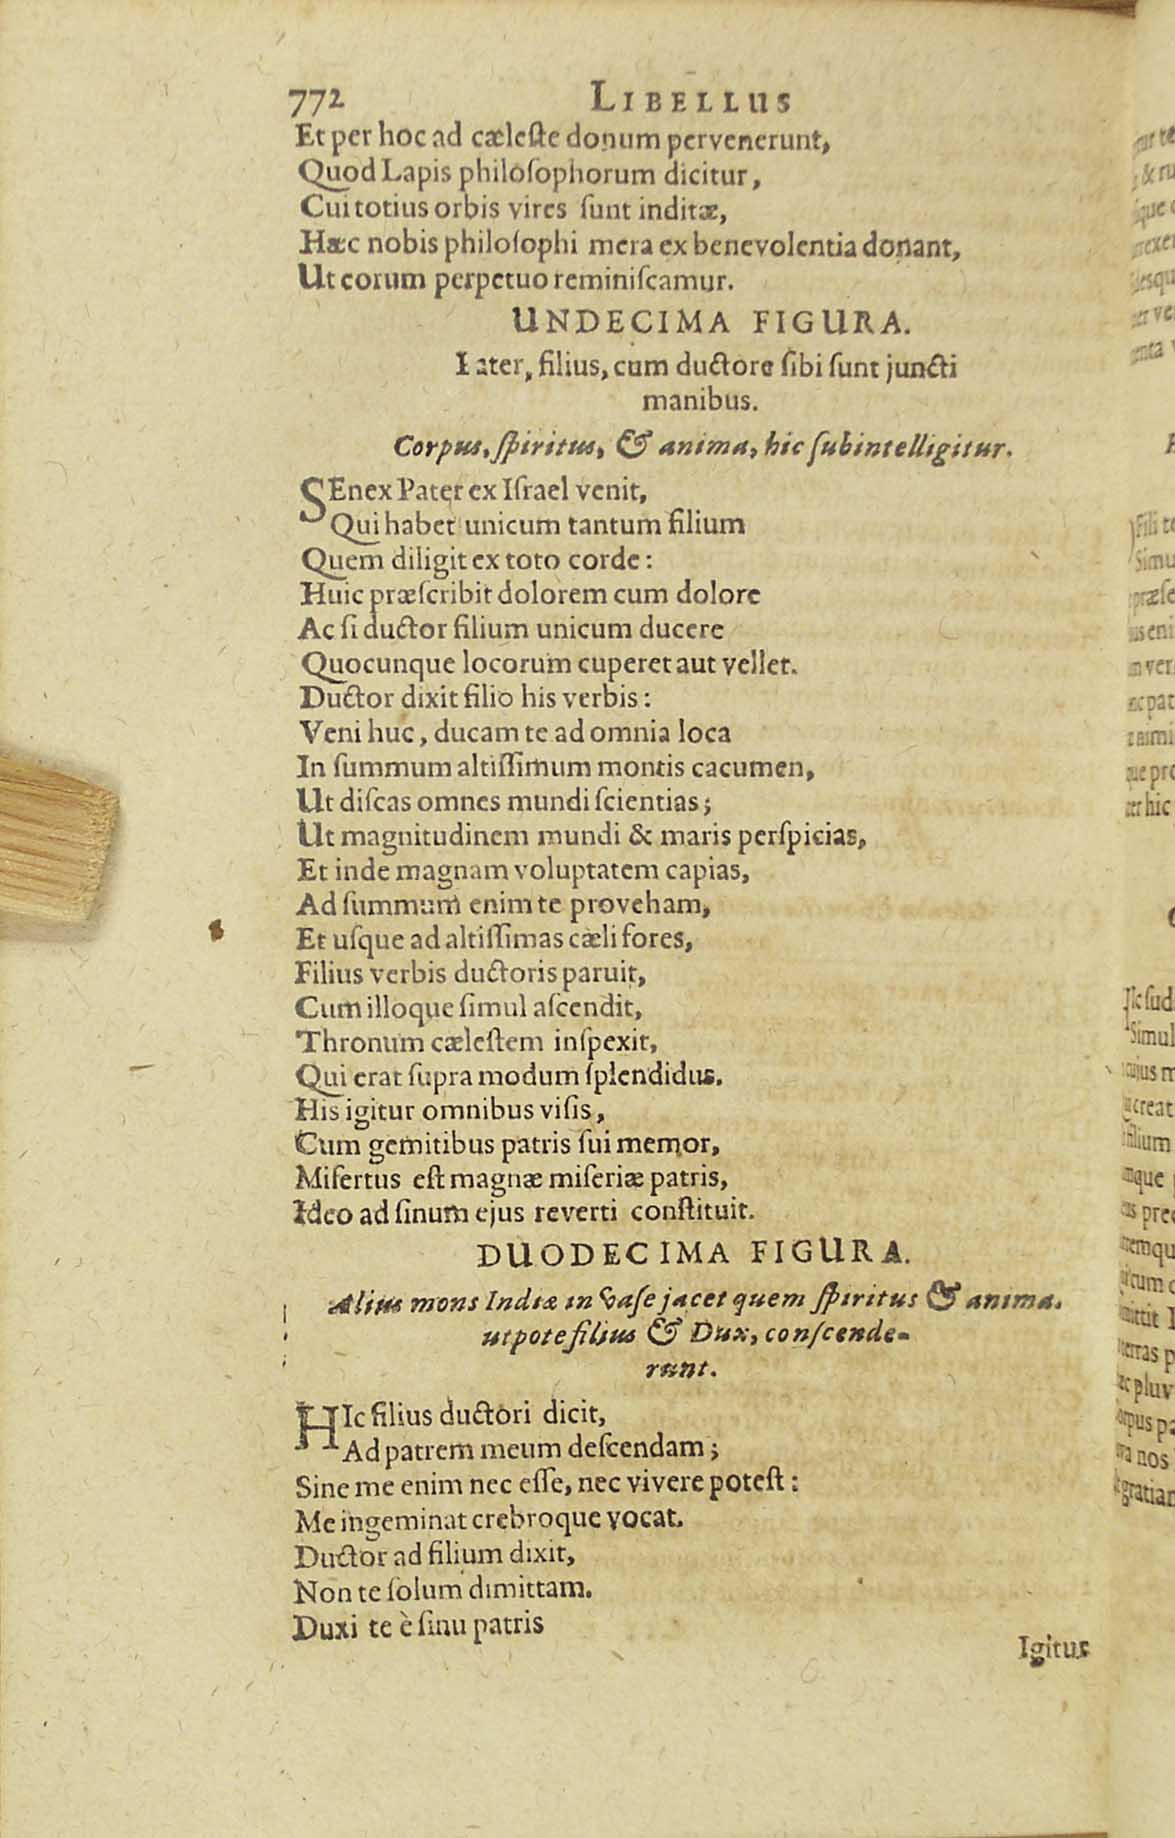 772 LIBELLUS
Et per hoc ad cæleſte donum pervenerunt,
Quod Lapis philoſophorum dicitur,
Cui totius orbis vires ſunt inditæ,
Hæc nobis philoſophi mera ex benevolentia donant,
Ut eorum perpetuo reminiſcamur.
UNDECIMA FIGURA.
Pater, filius, cum ductore ſibi ſunt juncti
manibus.
Corpus, ſpiritus, & anima, hic ſubintelligitur.
SEnex Pater ex Iſrael venit,
Qui habet unicum tantum filium
Quem diligit ex toto corde:
Huic præſcribit dolorem cum dolore
Ac ſi ductor filium unicum ducere
Quocunque locorum cuperet aut vellet.
Ductor dixit filio his verbis:
Veni huc, ducam te ad omnia loca
In ſummum altiſſimum montis cacumen,
Ut diſcas omnes mundi ſcientias;
Ut magnitudinem mundi & maris perſpicias,
Et inde magnam voluptatem capias,
Ad ſummum enim te proveham,
Et uſque ad altiſſimas cæli fores,
Filius verbis ductoris paruit,
Cum illoque ſimul aſcendit,
Thronum cæleſtem inſpexit,
Qui erat ſupra modum ſplendidus.
His igitur omnibus viſis,
Cum gemitibus patris ſui memor,
Miſertus eſt magnæ miſeriæ patris,
Ideo ad ſinum ejus reverti conſtituit.
DUODECIMA FIGURA.
Alius mons Indiæ in vaſe jacet quem ſpiritus & anima.
utpote filius & Dux, conſcende-
runt.
HIc filius ductori dicit,
Ad patrem meum deſcendam;
Sine me enim nec eſſe, nec vivere poteſt:
Me ingeminat crebroque vocat.
Ductor ad filium dixit,
Non te ſolum dimittam.
Duxi te è ſinu patris
Igitur